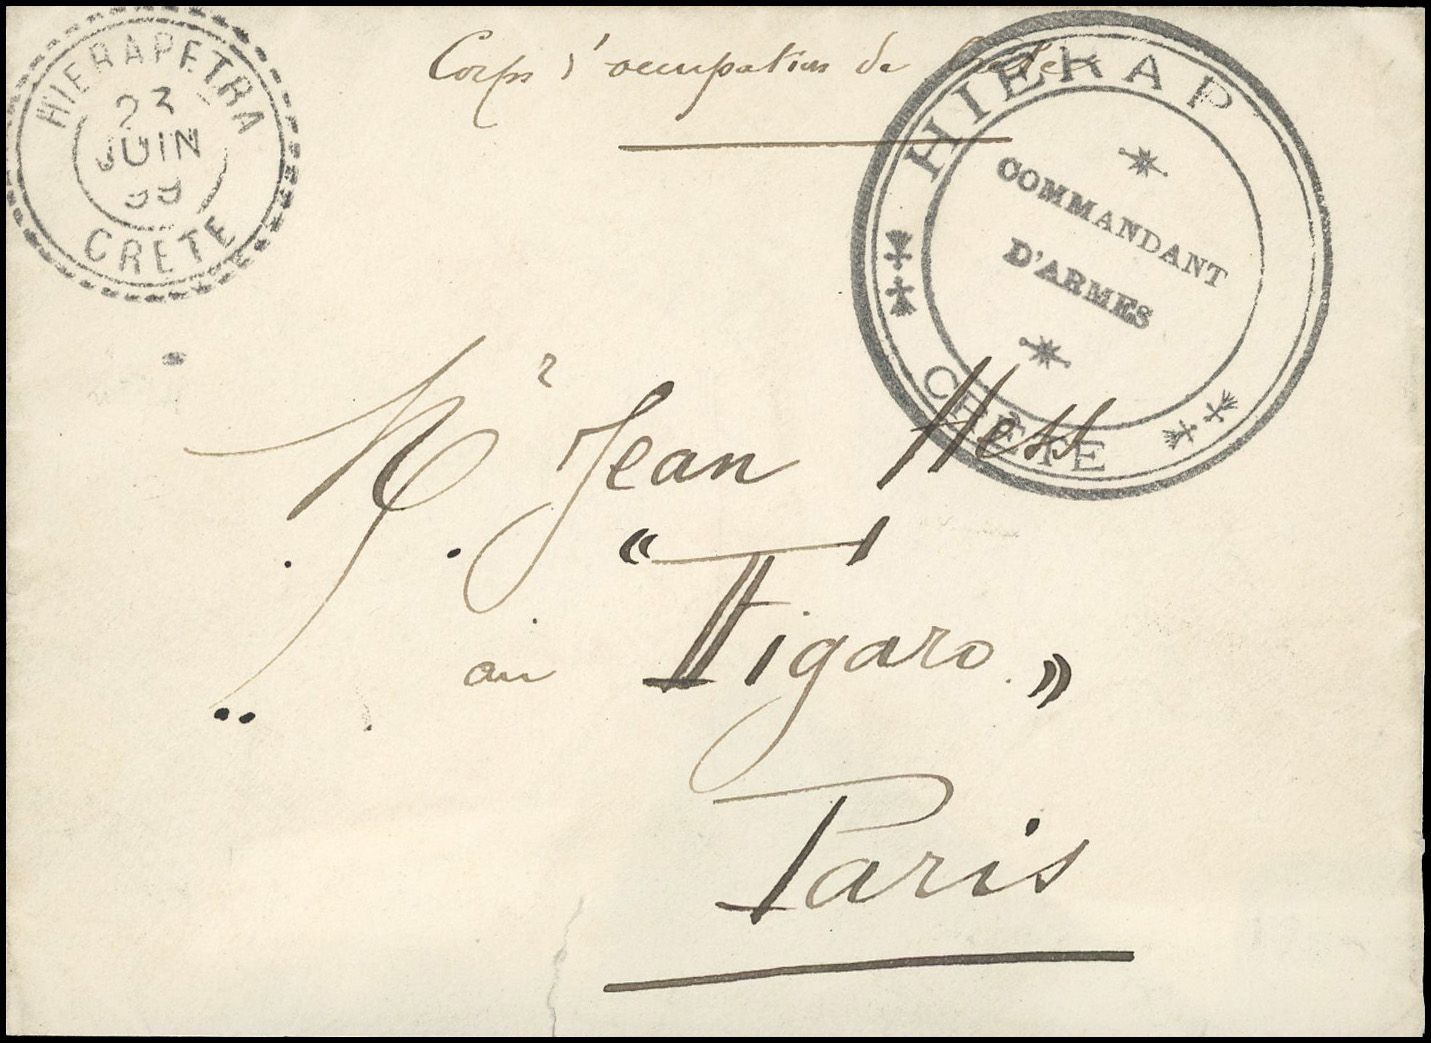 HIERAPETRA
23
JUIN
99
CRETE
Corps d'occupation de Crète
HIERAP
COMMANDANT
D'ARMES
CRÈTE
Mr Jean Hess
au « Figaro »
Paris